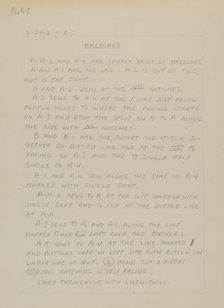 BREECHES
A-A-2 AND A-4 ARE CENTER FRONT OF BREECHES.
A AND A-1 ARE THE LEG - A-2 IS CUT ON FOLD
AND IS THE
A AND A-2 JOIN AT THE NOTCHES.
A-3 SEWS TO A-4 AT THE LINE JUST BELOW
BUTTON HOLES TO WHERE THE FACING STARTS
ON A-3 AND FROM THE SPLIT ON A TO A ALONG
THE SIDE WITH NOTCHES.
B AND B-1 ARE THE POCKET AND STITCH TO-
GETHER ON DOTTED LINE AND AT THE TO
FACING ON A-3 AND THE SINGLE HALF
CIRCLE ON A-4.
A-1 AND A-4 SEW ALONG THE LINE ON A-4
MARKED WITH SINGLE DART.
SEWS TO A AT THE SLIT MARKED WITH
SINGLE DART AND TO FLY AT THE DOTTED LINE
AT A-A
SEWS TO A AND A-1 ALONG THE LINE
MARKED LAPS OVER AND BUCKLES.
A-5 SEWS TO A-4 AT THE LINE MARKED
AND BUTTONS OVER ON LEFT SIDE
UNDERSIDE OF SELF. MEANS CUT 2 PIECES
AND HATCHING IS SELF FACING.
LINED THROUGHOUT WITH LINEN TWILL.